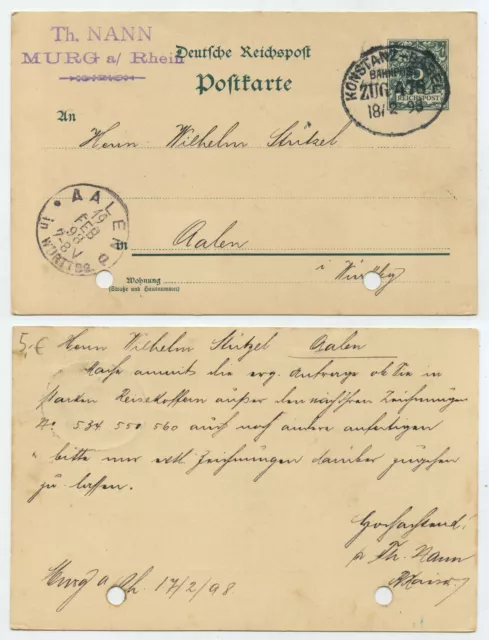 Th. NANN
MURG a/ Rhein
Deutsche Reichspost
Postkarte
KONSTANZ - BASEL
BAHNPOST
ZUG
18/2 98
5
REICHSPOST
An
Herrn Wilhelm Stützel
AALEN
19
FEB
98
7-8 V
in WÜRTTBG
in Aalen
i Württbg
Wohnung
(Straße und Hausnummer)
5,- €
Herrn Wilhelm Stützel Aalen
Mache anmit die erg. Anfrage ob Sie in
starken Reisekoffern außer den Zeichnungen
No. 534 550 560 auch noch andere anfertigen
" bitte mir evtl. Zeichnungen darüber zugehen
zu lassen.
Hochachtend!
p. Th. Nann
Murg a Rh. 17/2/98